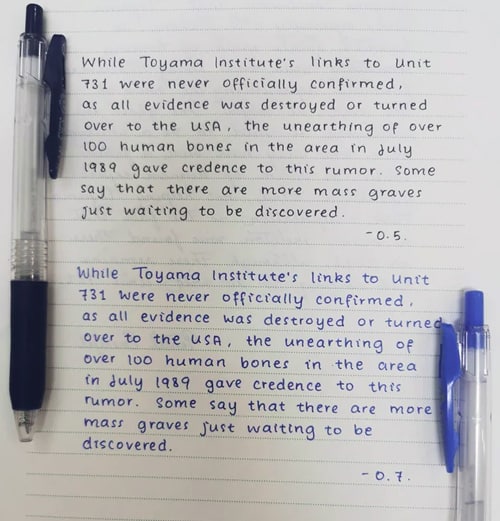 While Toyama Institute's links to Unit
731 were never officially confirmed,
as all evidence was destroyed or turned
over to the USA, the unearthing of over
100 human bones in the area in July
1989 gave credence to this rumor. Some
say that there are more mass graves
just waiting to be discovered.
- 0.5.
While Toyama Institute's links to Unit
731 were never officially confirmed,
as all evidence was destroyed or turned
over to the USA, the unearthing of
over 100 human bones in the area
in July 1989 gave credence to this
rumor. Some say that there are more
mass graves just waiting to be
discovered.
- 0.7.